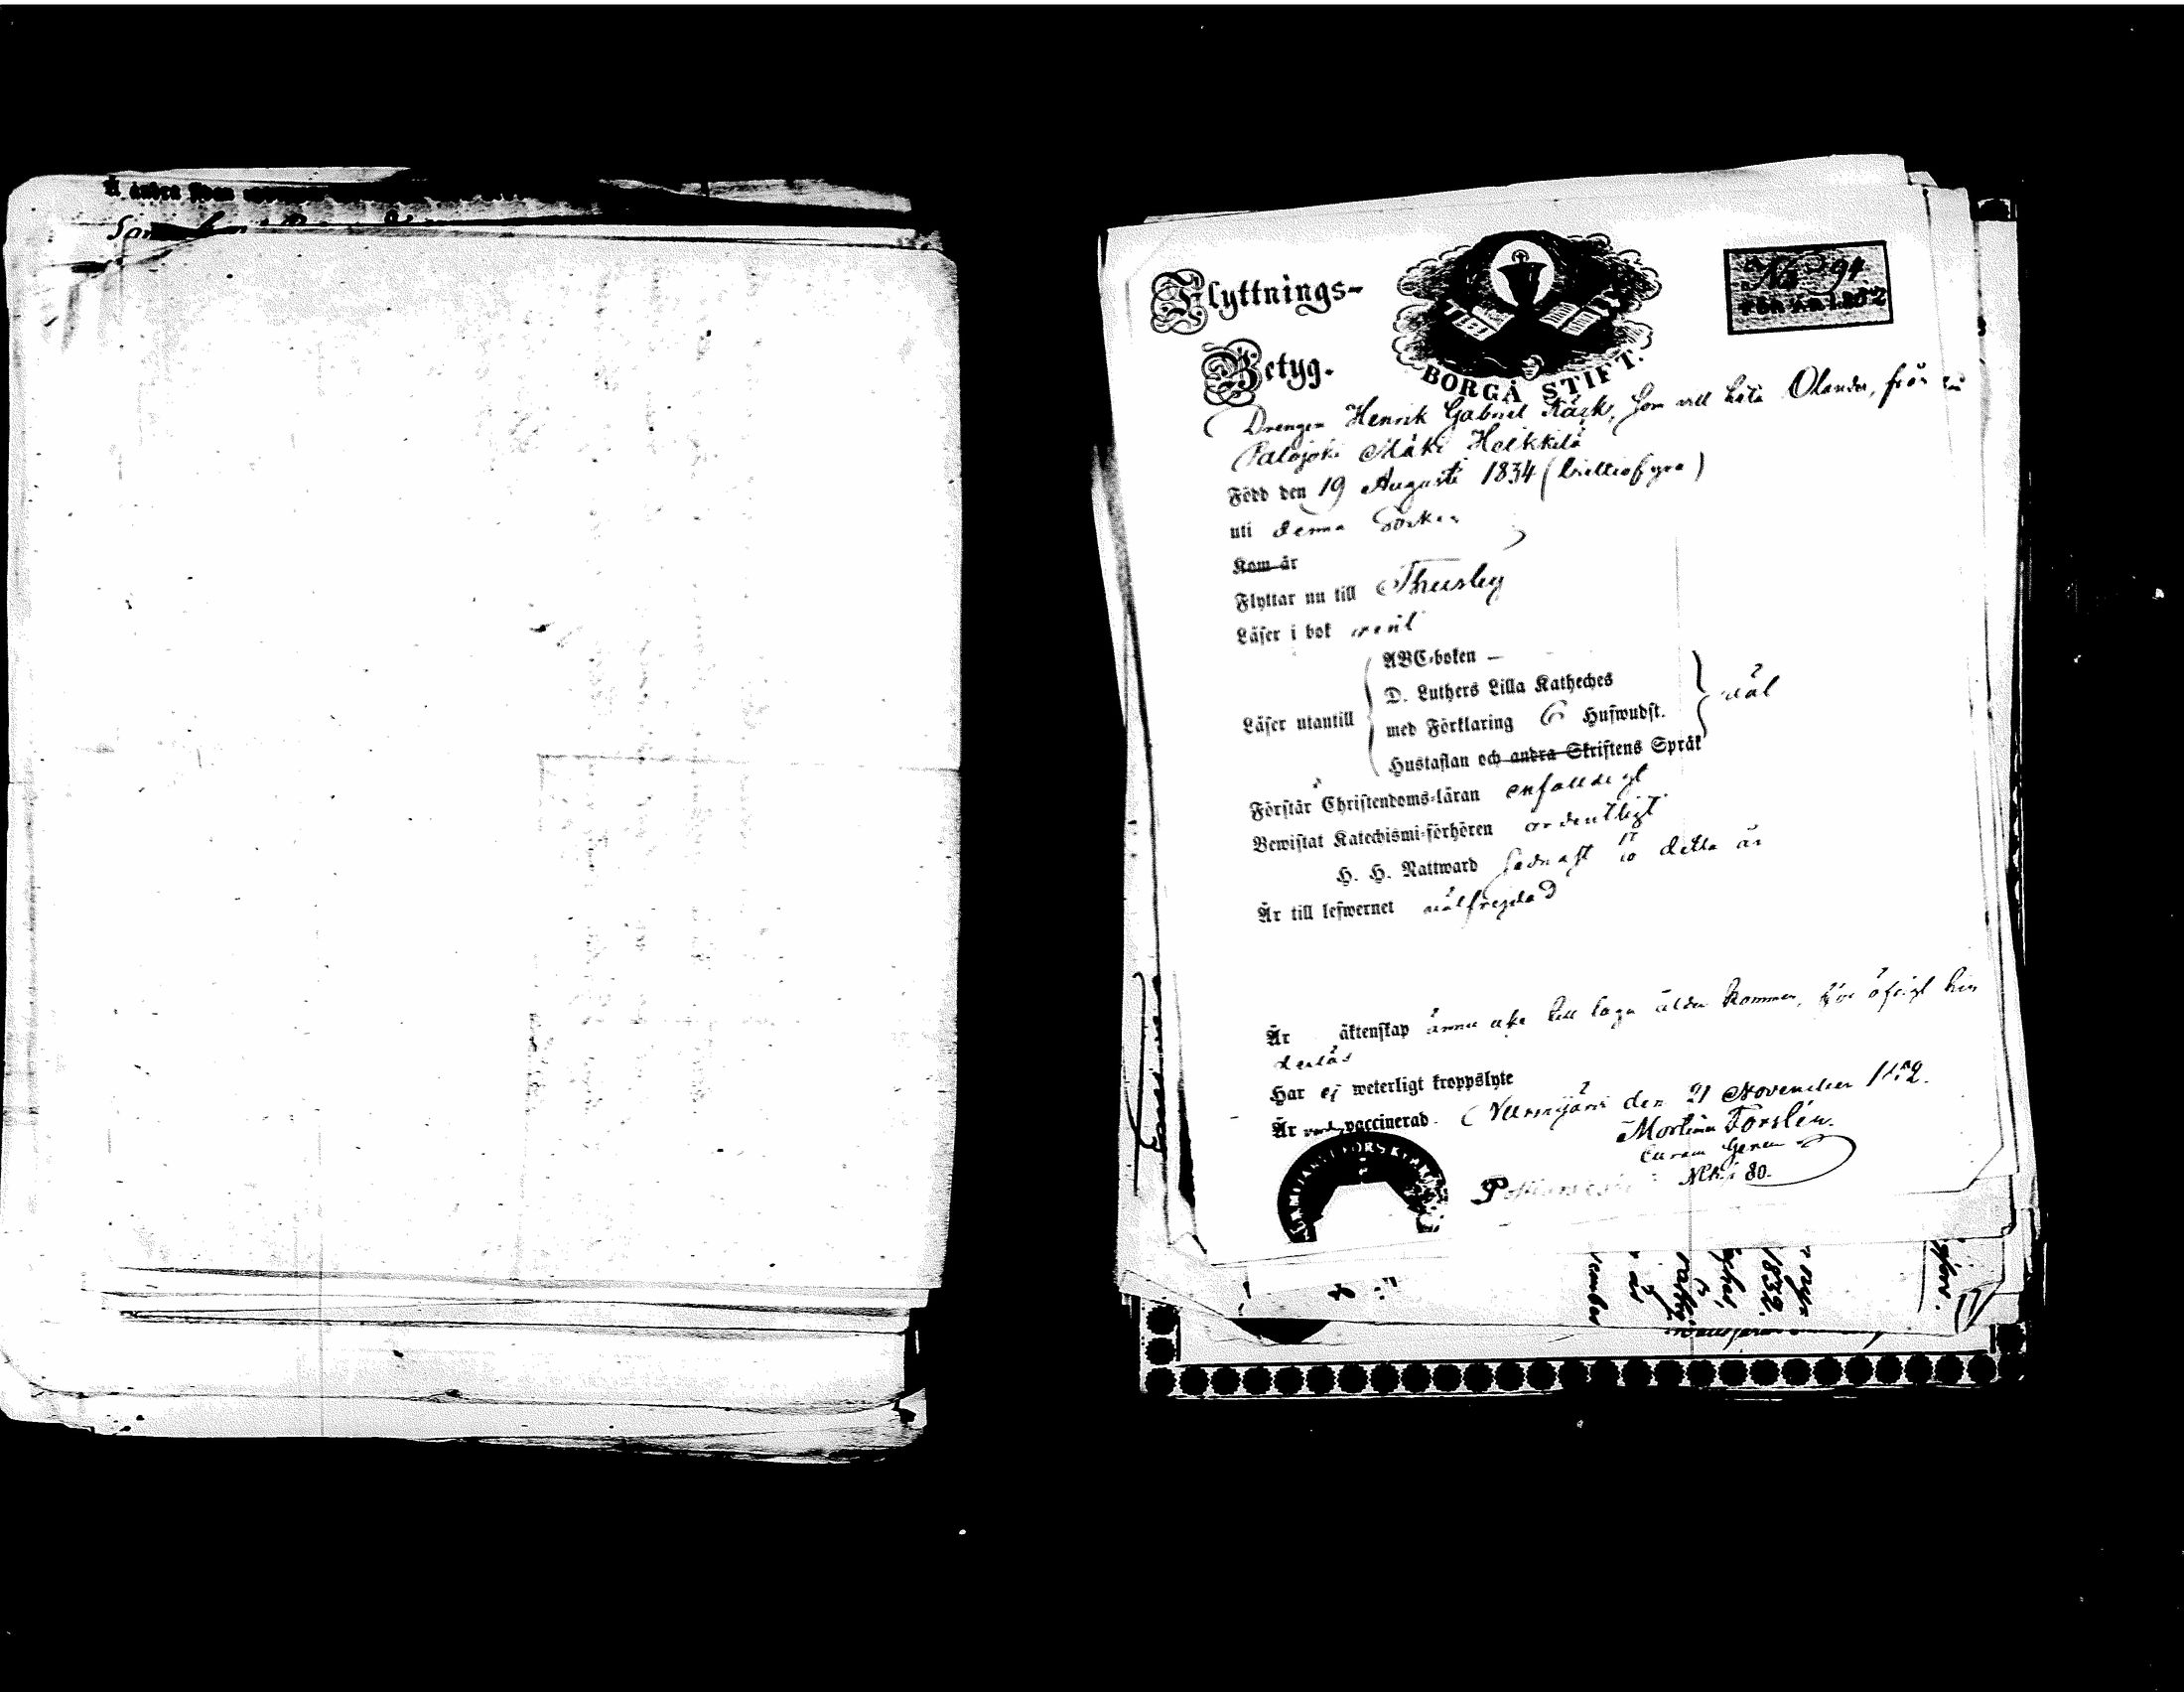 Flyttnings-
Betyg.
BORGÅ STIFT.
No 94
FÖR ÅR 1852
Drengen Henrik Gabriel som will heta Olander, från
Palojoki Mäki Heikkilä
Född den 19 Augusti 1834
uti denna Socken
Kom år
Flyttar nu till Thusby
Läser i bok wäl
Läser utantill
ABC-boken —
D. Luthers Lilla Katheches
med Förklaring 6 Hufwudst.
Hustaflan och andra Skriftens Språk
wäl
Förstår Christendoms-läran enfaldigt
Bewistat Katechismi-förhören ordentligt
H. H. Nattward sednast detta år
Är till lefwernet wälfrejdad
Är äktenskap ännu icke till laga ålder kommen, för öfrigt hin
derlös
Har ej weterligt kroppslyte
Är vaccinerad. Nurmijärvi den 21 November 1852.
Forslén.
80.
1832.